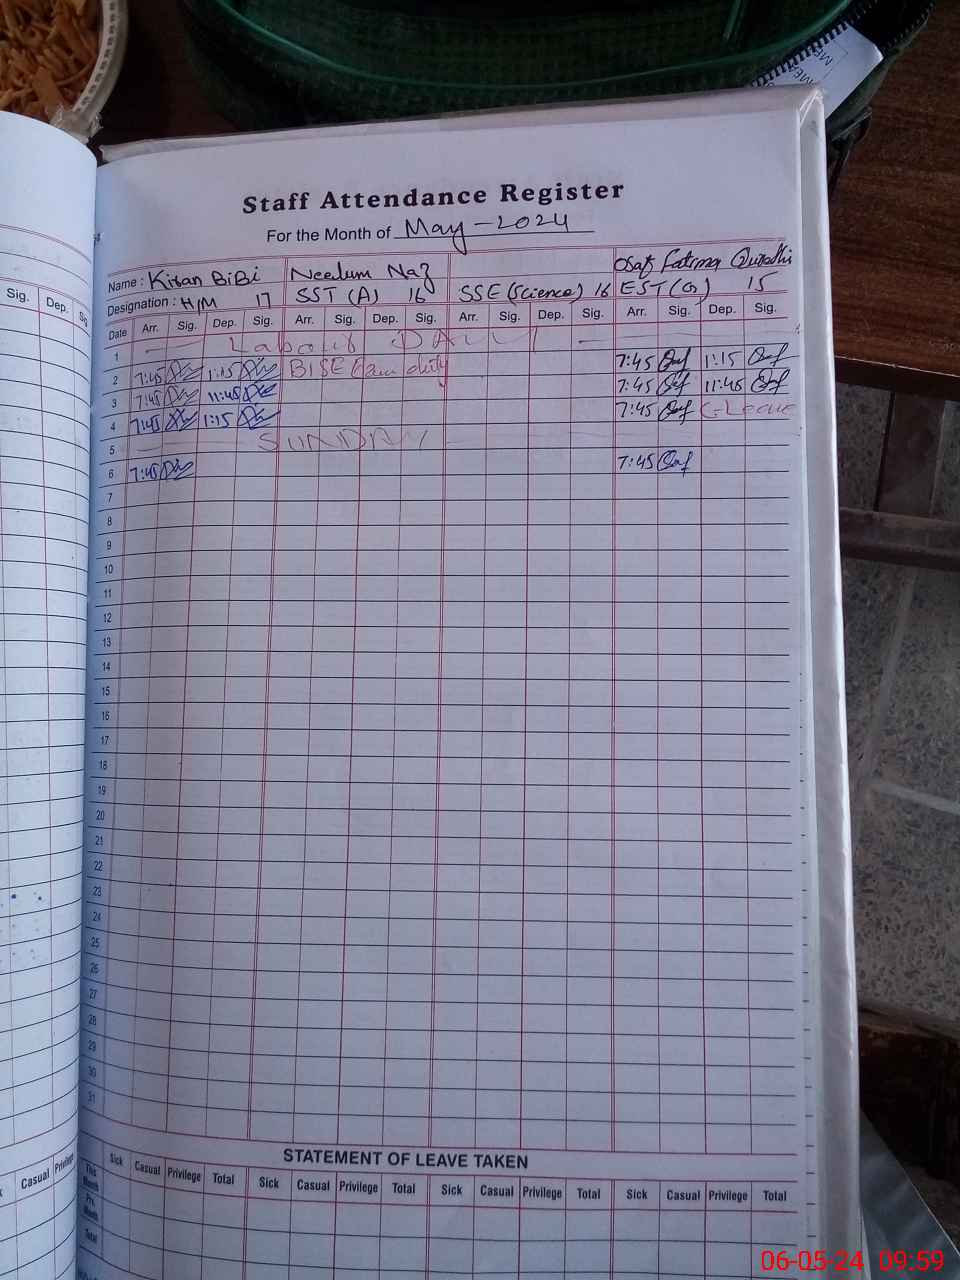 Staff Attendance Register
For the Month of May-2024
Name : Kiran BiBi Neelum Naz Osaf Fatima Qurashi
Designation : H/M 17 SST (A) 16 SSE (Science) 16 EST (G) 15
Sig. Dep. Sig
Date Arr. Sig. Dep. Sig. Arr. Sig. Dep. Sig. Arr. Sig. Dep. Sig. Arr. Sig. Dep. Sig.
1 Labour DAY
2 7:45 1:15 BISE Exam duty 7:45 1:15
3 7:45 11:45 7:45 11:45
4 7:45 1:15 7:45 C-Leave
5 SUNDAY
6 7:45 7:45
7
8
9
10
11
12
13
14
15
16
17
18
19
20
21
22
23
24
25
26
27
28
29
30
31
STATEMENT OF LEAVE TAKEN
Casual Privilege
Sick Casual Privilege Total Sick Casual Privilege Total Sick Casual Privilege Total Sick Casual Privilege Total
This Month
Pre. Month
Total
06-05-24 09:59